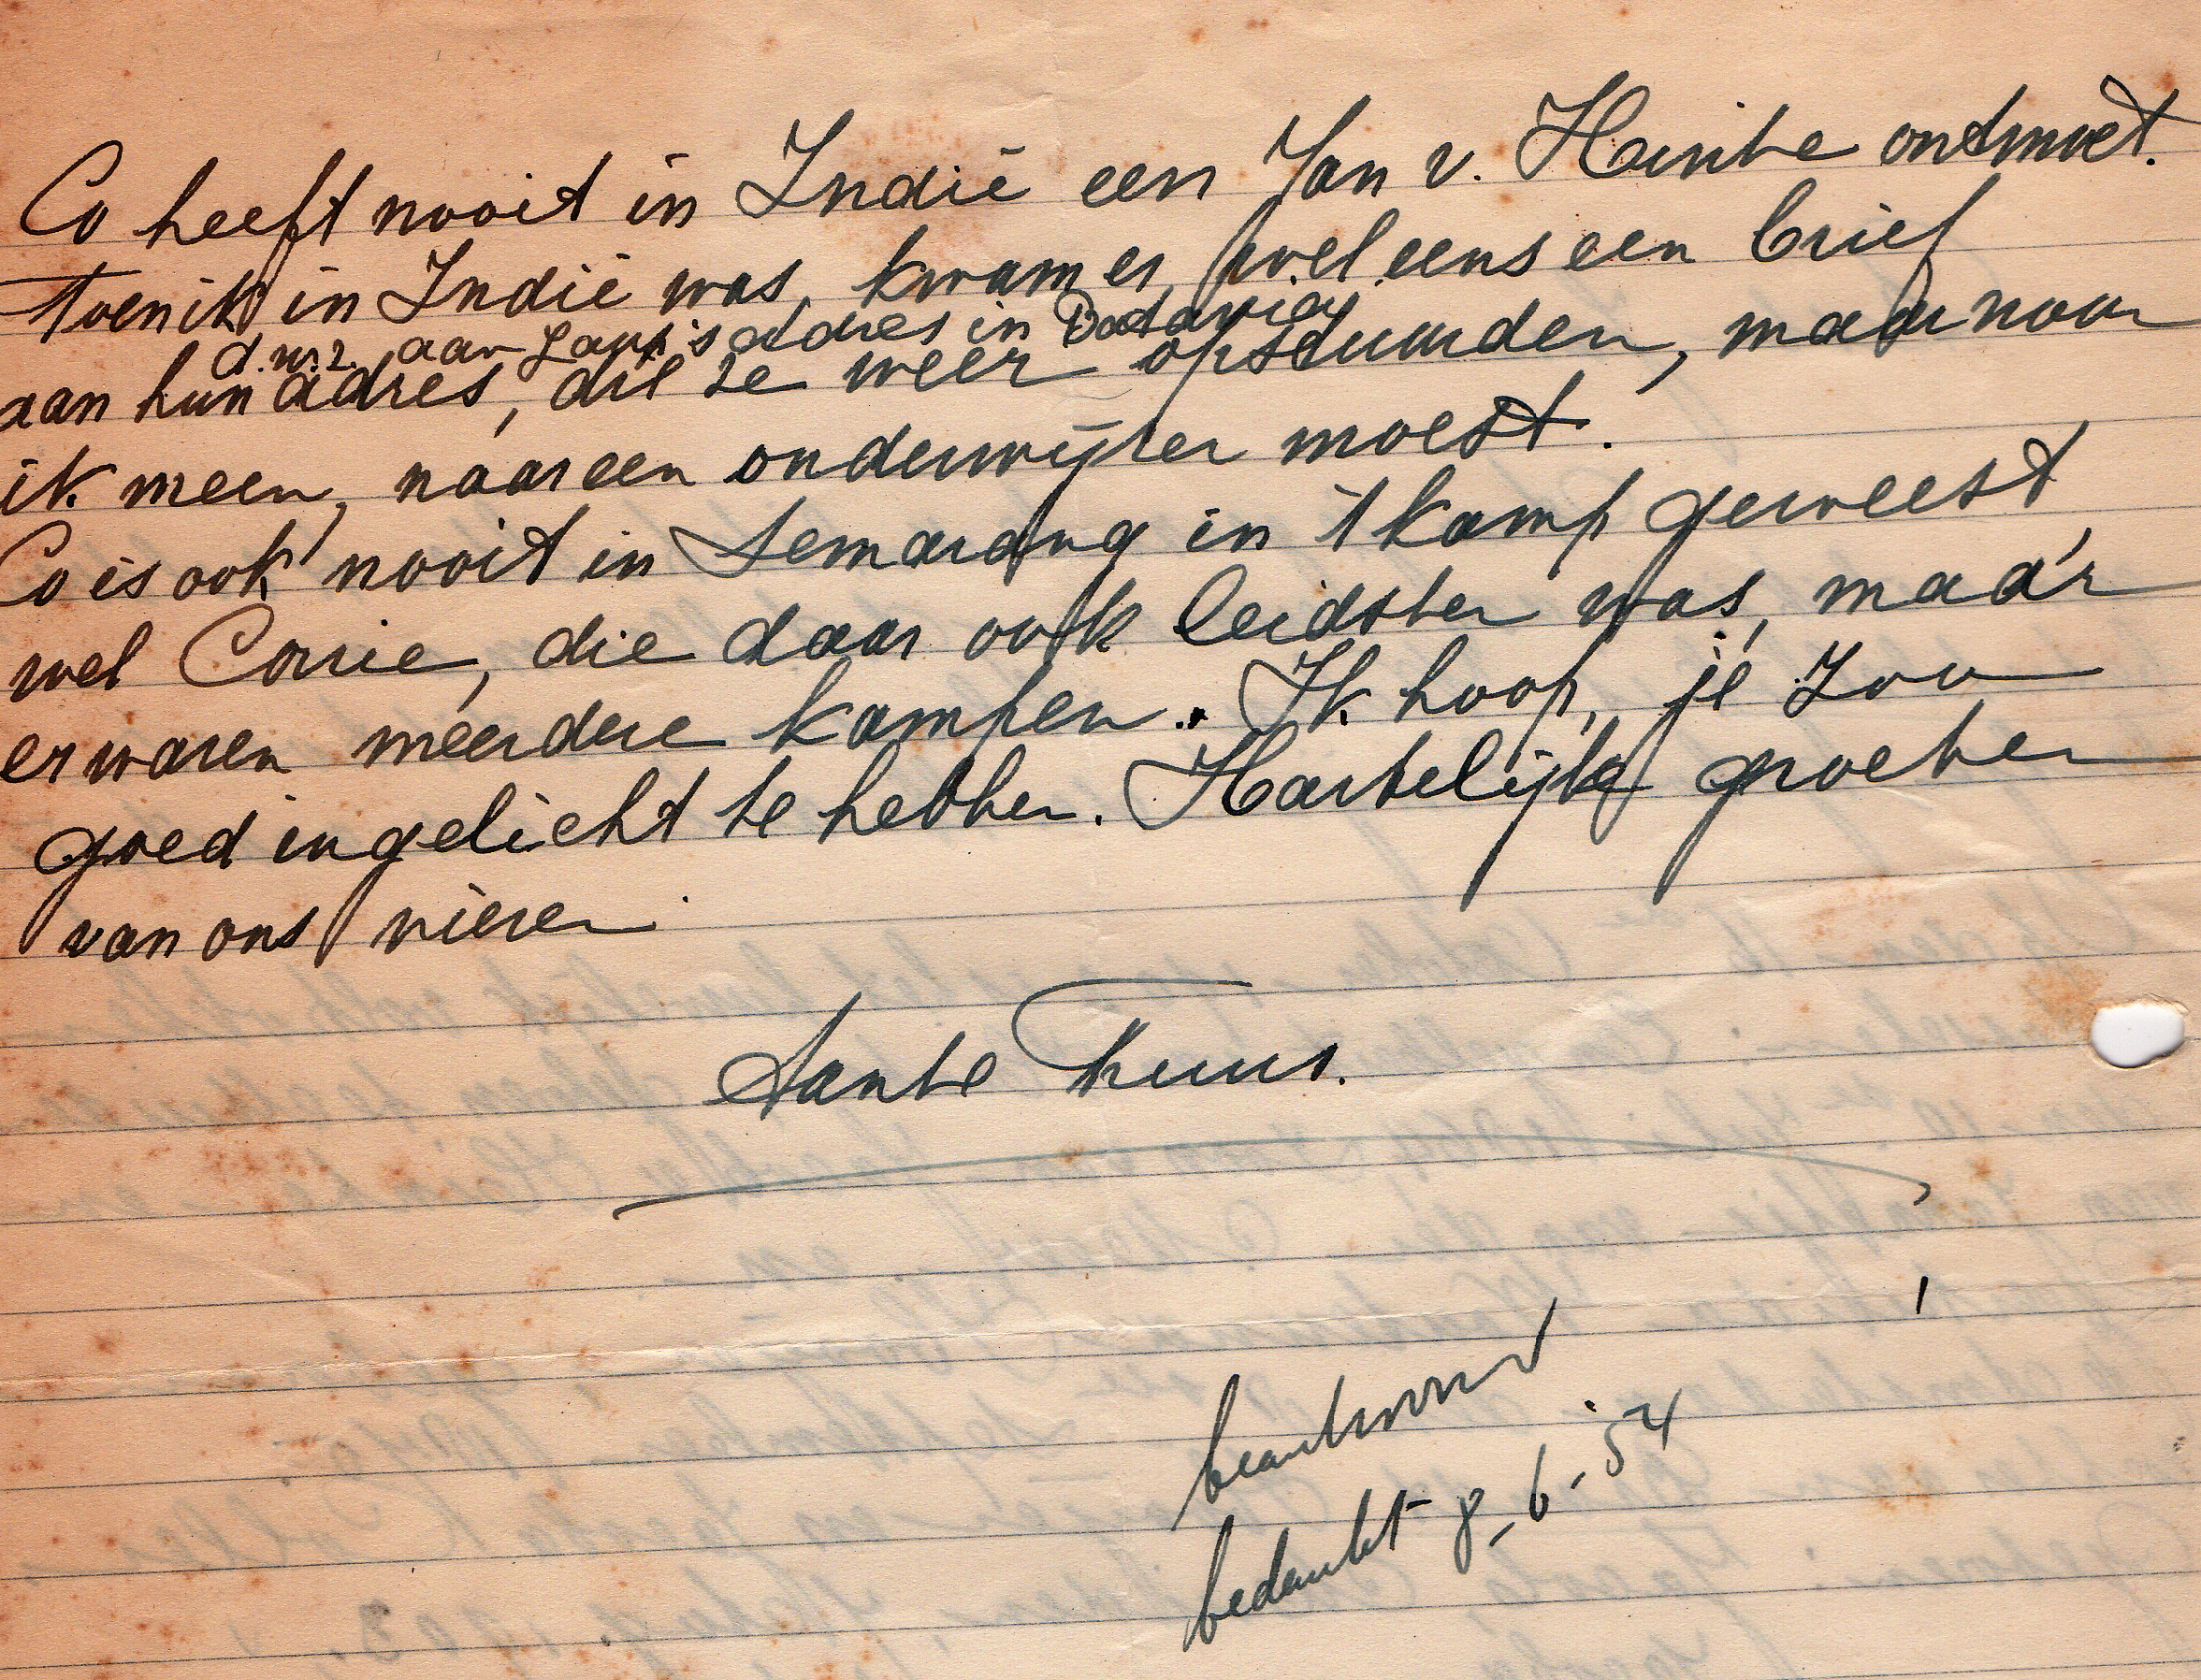 Co heeft nooit in Indië een Jan v. Heinte ontmoet.
Toen ik in Indië was, kwam er wel eens een brief
d.w.z. aan adres in Batavia
aan hun adres, die ze weer opstuurden, maar naar
ik meen, naar een onderwijzer moest.
Co is ook nooit in Semarang in 't kamp geweest,
wel Corrie, die daar ook leidster was, maar
er waren meerdere kampen. Ik hoop, je zoo
goed ingelicht te hebben. Hartelijke groeten
van ons vieren.
Tante Truus.
beantwoord
bedankt 8-6-54